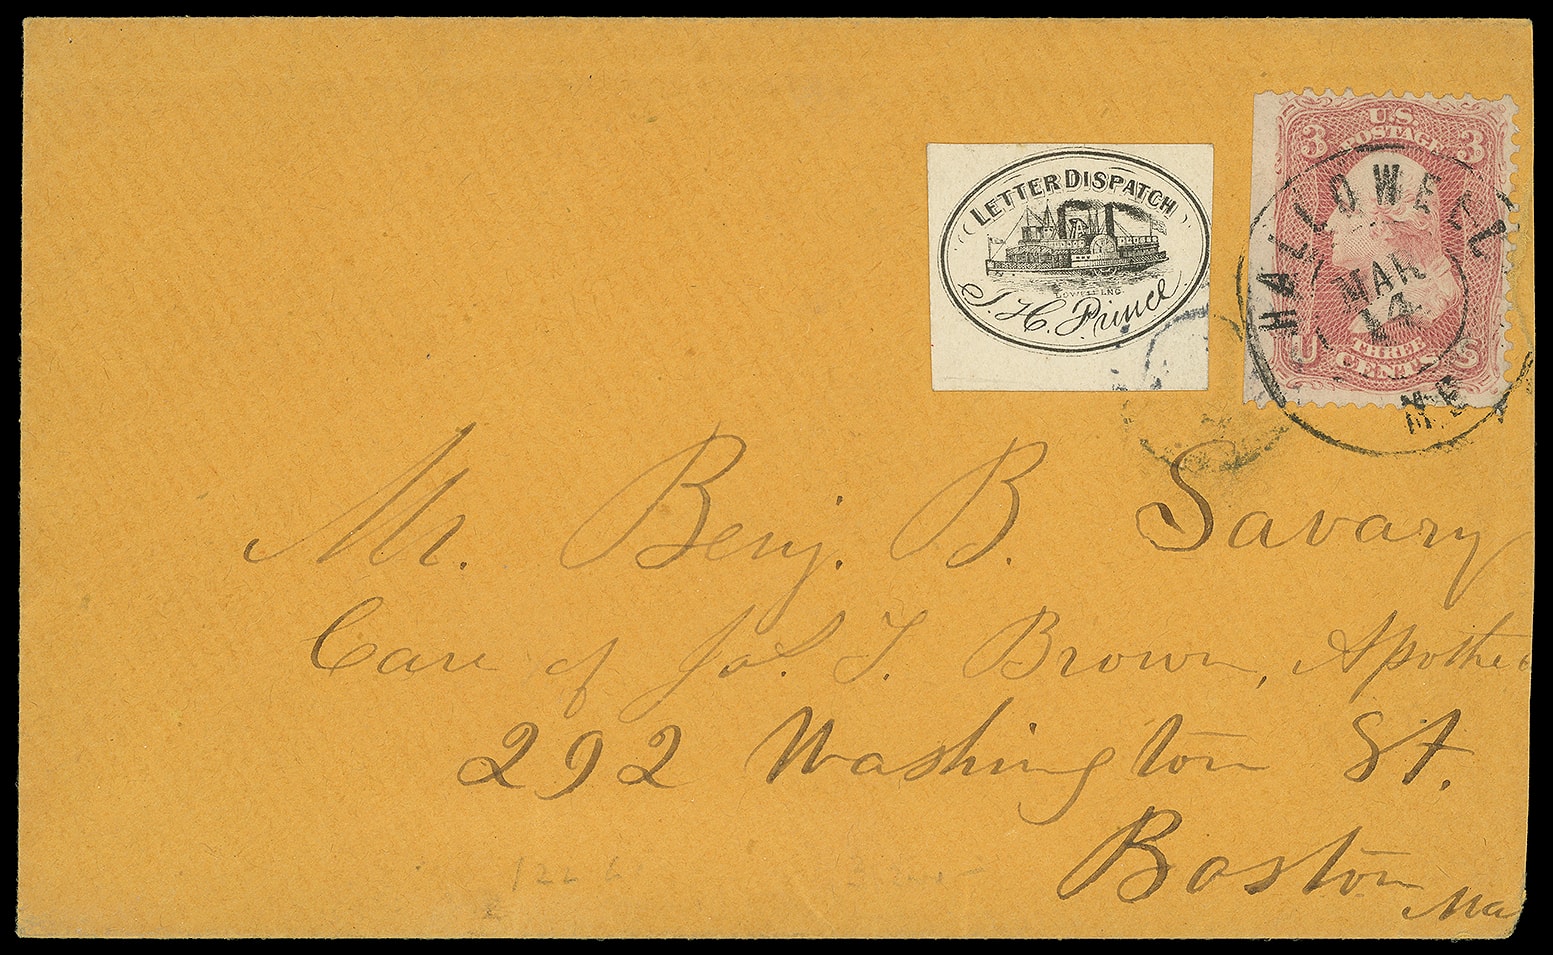 LETTER DISPATCH
LOWELL ENG
J. H. Prince
3 U.S. 3
POSTAGE
U S
THREE
CENTS
HALLOWELL
MAR
14
Mr. Benj. B. Savary
Care of Jos. T. Brown, Apothec
292 Washington St.
Boston
Ma